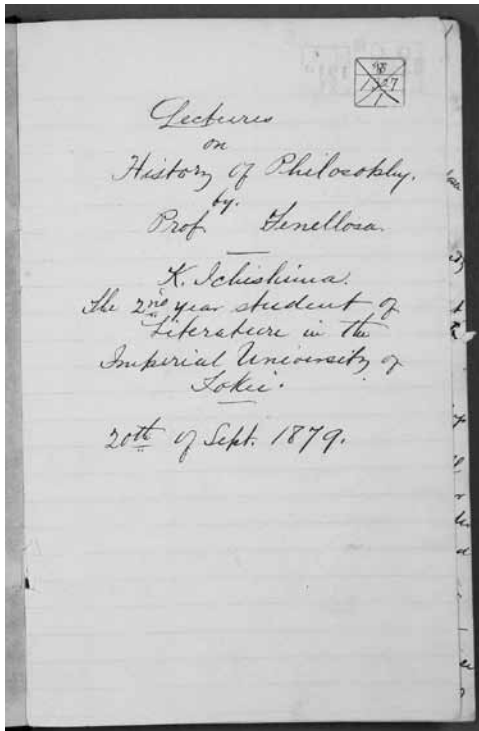 98
1327
1
Lectures
on
History of Philosophy.
by.
Prof. Fenellosa.
K. Ichishima.
The 2nd year student of
Literature in the
Imperial University of
Tokei.
20th of Sept. 1879.